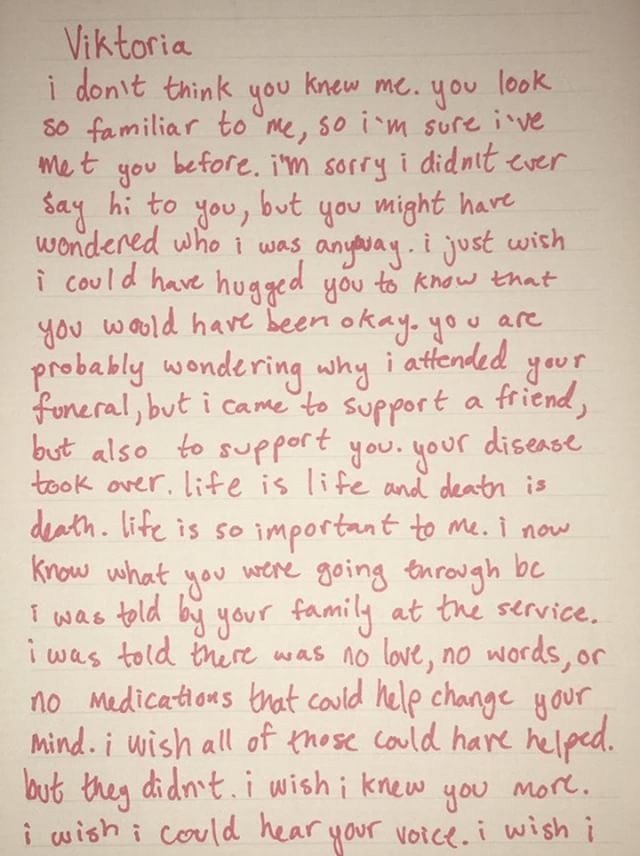 Viktoria
i don't think you knew me. you look
so familiar to me, so i'm sure i've
met you before. i'm sorry i didn't ever
say hi to you, but you might have
wondered who i was anyway. i just wish
i could have hugged you to know that
you would have been okay. you are
probably wondering why i attended your
funeral, but i came to support a friend,
but also to support you. your disease
took over. life is life and death is
death. life is so important to me. i now
know what you were going through bc
i was told by your family at the service.
i was told there was no love, no words, or
no medications that could help change your
mind. i wish all of those could have helped.
but they didn't. i wish i knew you more.
i wish i could hear your voice. i wish i